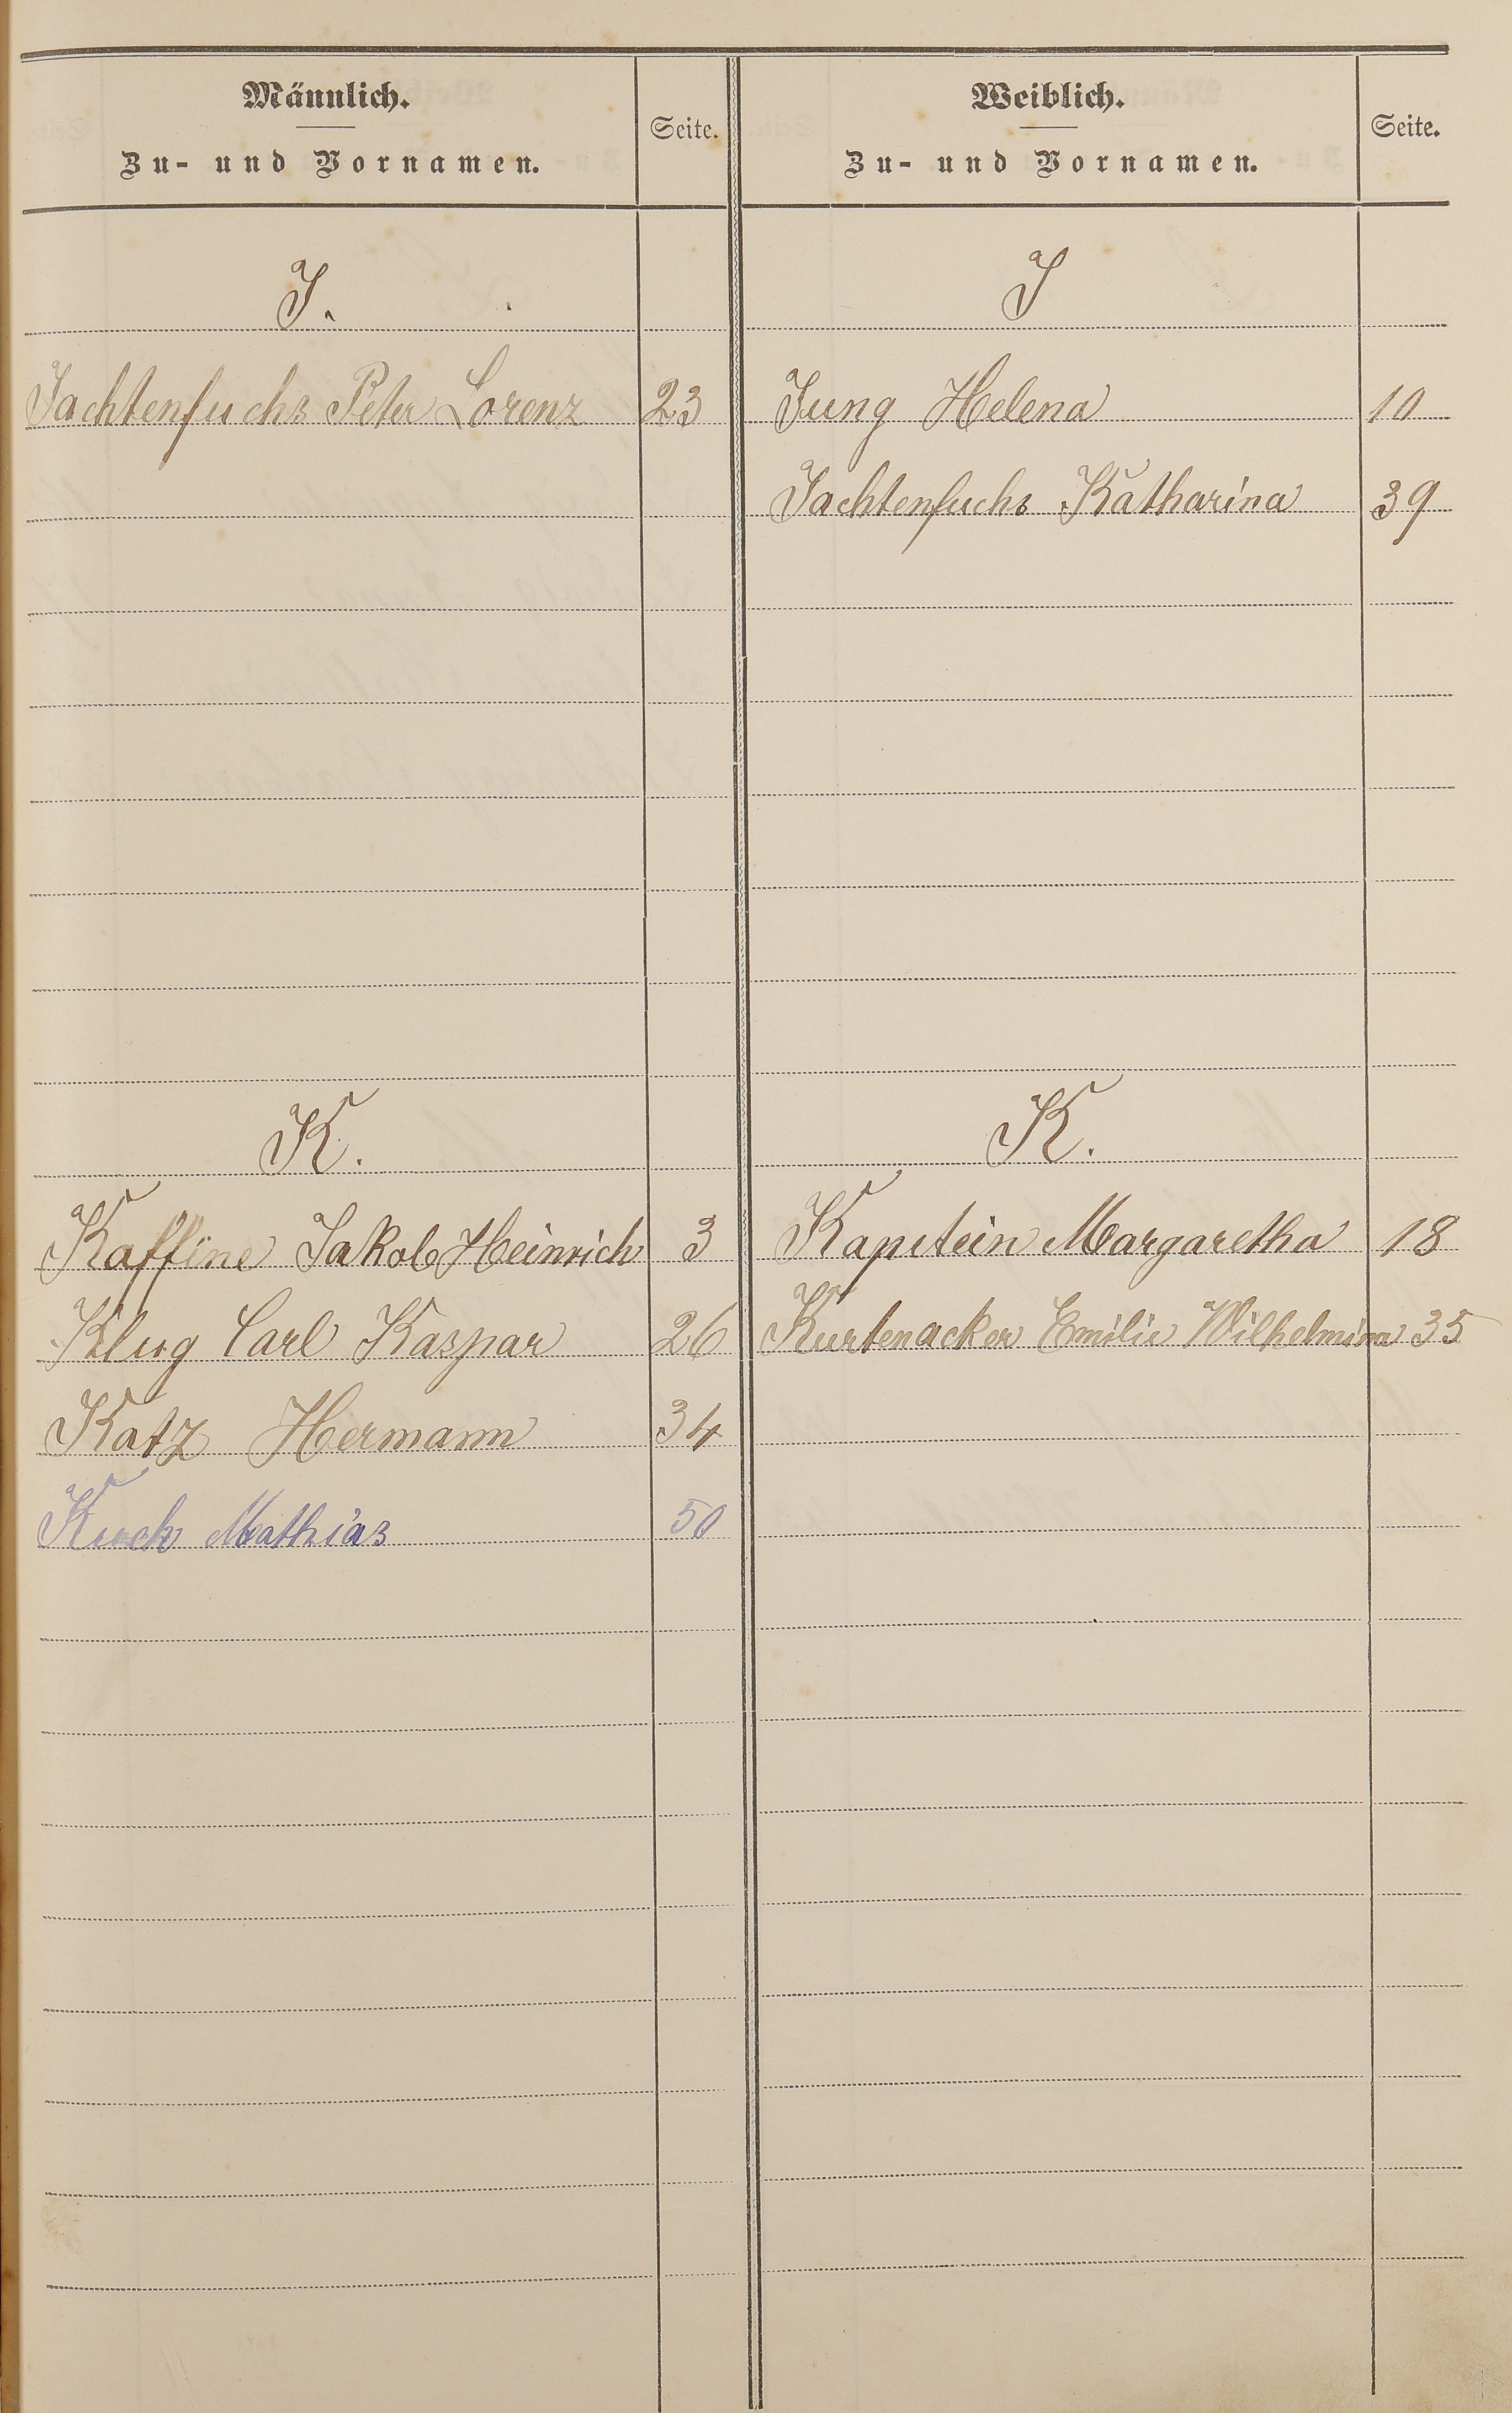 Männlich.
Zu- und Vornamen.
Seite.
J.
Jachtenfuchs Peter Lorenz 23
K.
Kaffine Jakob Heinrich 3
Klug Carl Kaspar 26
Katz Hermann 34
Mathias 50
Weiblich.
Zu- und Vornamen.
Seite.
J
Jung Helena 10
Jachtenfuchs Katharina 39
K.
Kapitein Margaretha 18
Kurtenacker Emilie Wilhelmina 35